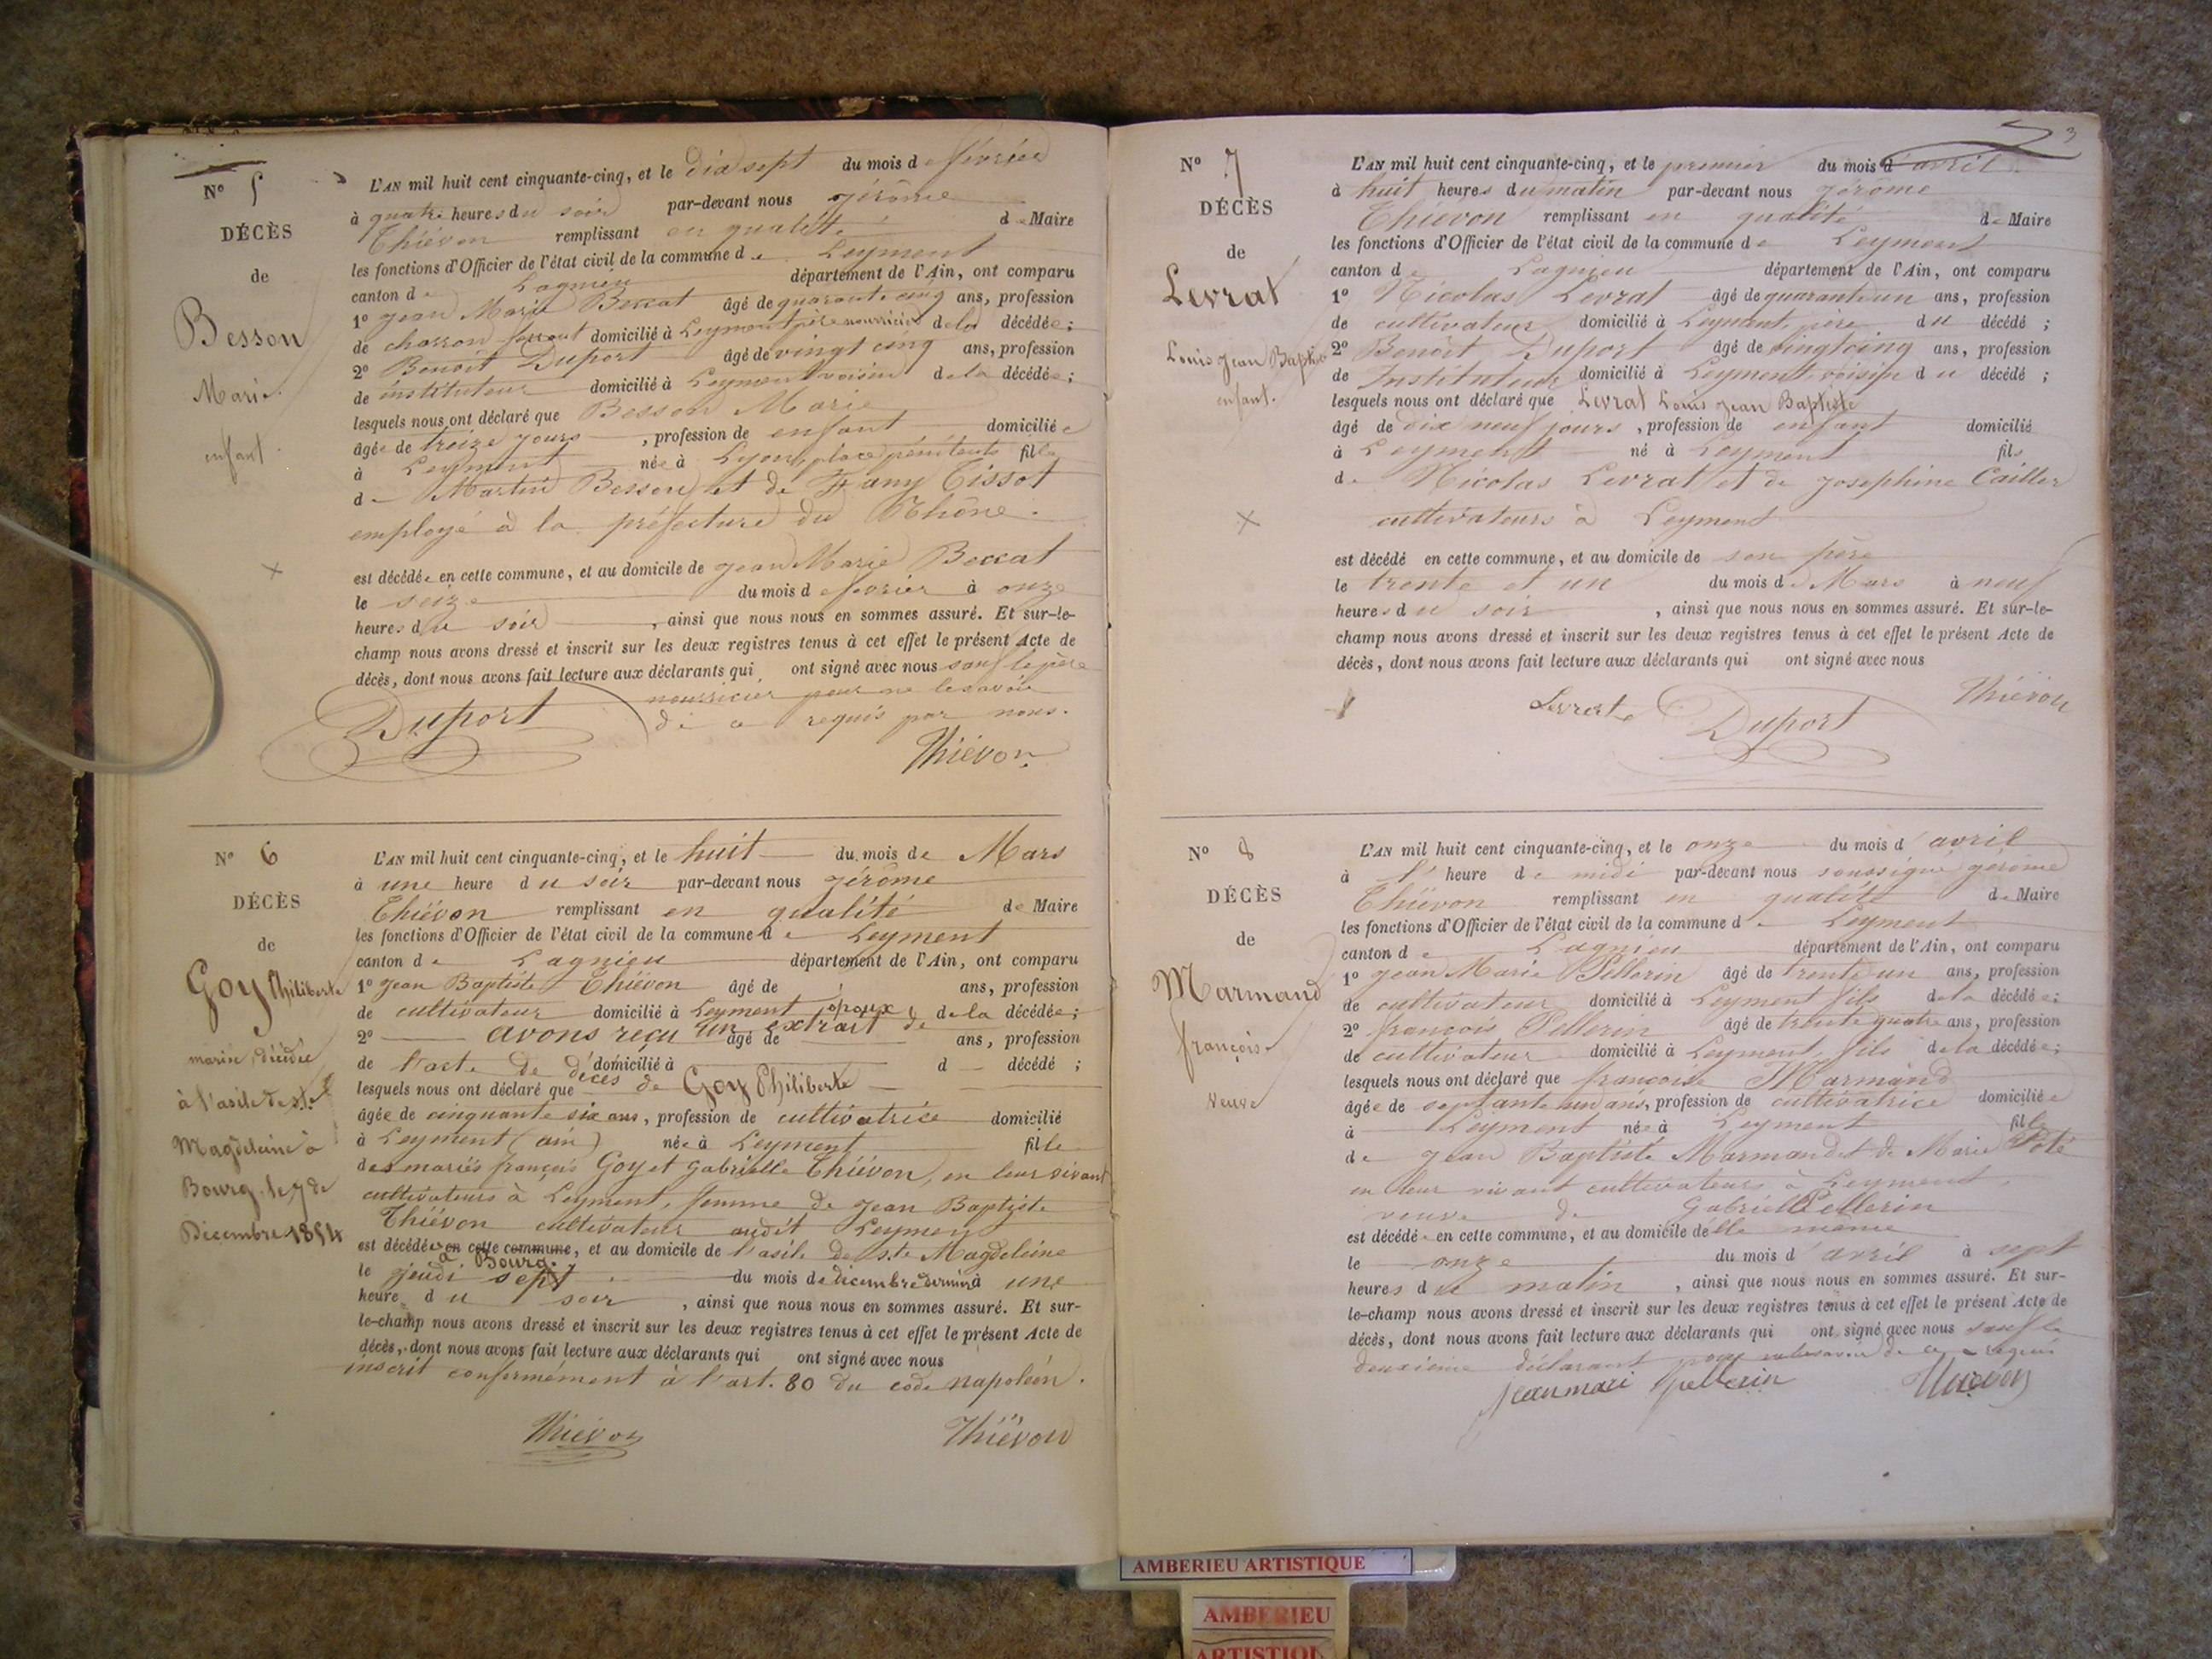 N° 5
DÉCÈS
de
Besson
Marie
enfant.
L'AN mil huit cent cinquante-cinq, et le dix sept du mois de février
à quatre heures du soir par-devant nous jérôme
Thiévon remplissant en qualité de Maire
les fonctions d'Officier de l'état civil de la commune de Leyment
canton de Lagnieu département de l'Ain, ont comparu
1° jean Marie Beccat âgé de quarante cinq ans, profession
de charron domicilié à Leyment père nourricier de la décédée;
2° Benoit Duport âgé de vingt cinq ans, profession
de instituteur domicilié à Leyment voisin de la décédée;
lesquels nous ont déclaré que Besson Marie
âgée de treize jours, profession de enfant domiciliée
à Leyment née à Lyon, place pénitents fille
de Martin Besson et de Fany Tissot
employé à la préfecture du Rhône.
est décédée en cette commune, et au domicile de jean Marie Beccat
le seize du mois de fevrier à onze
heures du soir, ainsi que nous nous en sommes assuré. Et sur-le-
champ nous avons dressé et inscrit sur les deux registres tenus à cet effet le présent Acte de
décès, dont nous avons fait lecture aux déclarants qui ont signé avec nous sauf le père
nourricier pour ne le savoir
de ce requis par nous.
Duport
Thiévon
N° 6
DÉCÈS
de
Goy Philiberte
mariée, décédée
à l'asile de Ste
Magdeleine à
Bourg. le 7 de
Décembre 1854
L'AN mil huit cent cinquante-cinq, et le huit du mois de Mars
à une heure du soir par-devant nous jérôme
Thiévon remplissant en qualité de Maire
les fonctions d'Officier de l'état civil de la commune de Leyment
canton de Lagnieu département de l'Ain, ont comparu
1° jean Baptiste Thiévon âgé de ans, profession
de cultivateur domicilié à Leyment époux de la décédée;
2° avons reçu un extrait de âgé de ans, profession
de l'acte de décès domicilié à d décédé;
lesquels nous ont déclaré que de Goy Philiberte
âgée de cinquante six ans, profession de cultivatrice domicilié
à Leyment (ain) née à Leyment fille
des mariés françois Goy et Gabrielle Thiévon, en leur vivant
cultivateurs à Leyment, femme de jean Baptiste
Thiévon cultivateur audit Leyment
est décédée en cette commune, et au domicile de l'asile de Ste Magdeleine
à Bourg.
le jeudi sept du mois de dicembre dernier à une
heure du soir, ainsi que nous nous en sommes assuré. Et sur-
le-champ nous avons dressé et inscrit sur les deux registres tenus à cet effet le présent Acte de
décès, dont nous avons fait lecture aux déclarants qui ont signé avec nous
inscrit conformément à l'art. 80 du code napoléon.
Thiévon
Thiévon
3
N° 7
DÉCÈS
de
Levrat
Louis Jean Baptiste
enfant.
L'AN mil huit cent cinquante-cinq, et le premier du mois d'avril
à huit heures du matin par-devant nous jérôme
Thiévon remplissant en qualité de Maire
les fonctions d'Officier de l'état civil de la commune de Leyment
canton de Lagnieu département de l'Ain, ont comparu
1° Nicolas Levrat âgé de quarante un ans, profession
de cultivateur domicilié à Leyment, père du décédé;
2° Benoit Duport âgé de vingt cinq ans, profession
de Instituteur domicilié à Leyment voisin du décédé;
lesquels nous ont déclaré que Levrat Louis Jean Baptiste
âgé de dix neuf jours, profession de enfant domicilié
à Leyment né à Leyment fils
de Nicolas Levrat et de josephine Cailler
cultivateurs à Leyment
est décédé en cette commune, et au domicile de son père
le trente et un du mois de Mars à neuf
heures du soir, ainsi que nous nous en sommes assuré. Et sur-le-
champ nous avons dressé et inscrit sur les deux registres tenus à cet effet le présent Acte de
décès, dont nous avons fait lecture aux déclarants qui ont signé avec nous
Levrat
Duport
Thiévon
N° 8
DÉCÈS
de
Marmand
françoise
veuve
L'AN mil huit cent cinquante-cinq, et le onze du mois d'avril
à l' heure de midi par-devant nous soussigné jérôme
Thiévon remplissant en qualité de Maire
les fonctions d'Officier de l'état civil de la commune de Leyment
canton de Lagnieu département de l'Ain, ont comparu
1° jean Marie Pellerin âgé de trente un ans, profession
de cultivateur domicilié à Leyment fils de la décédée;
2° françois Pellerin âgé de trente quatre ans, profession
de cultivateur domicilié à Leyment, fils de la décédée;
lesquels nous ont déclaré que françoise Marmand
âgée de septante un ans, profession de cultivatrice domiciliée
à Leyment née à Leyment fille
de jean Baptiste Marmand et de Marie Poté
en leur vivant cultivateurs à Leyment,
veuve de Gabriel Pellerin
est décédée en cette commune, et au domicile d'elle même
le onze du mois d'avril à sept
heures du matin, ainsi que nous nous en sommes assuré. Et sur-
le-champ nous avons dressé et inscrit sur les deux registres tenus à cet effet le présent Acte de
décès, dont nous avons fait lecture aux déclarants qui ont signé avec nous sauf le
deuxième déclarant pour ne le savoir de ce requis
jean mari pellerin
Thiévon
AMBERIEU ARTISTIQUE
AMBERIEU
ARTISTIQ